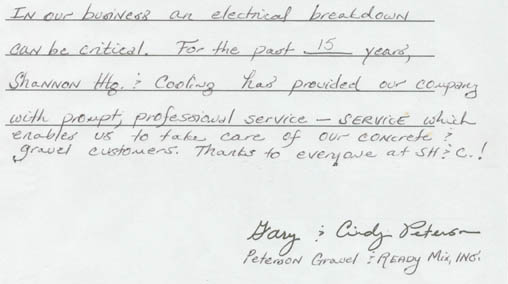 In our business an electrical breakdown
can be critical. For the past 15 years,
Shannon Htg. & Cooling has provided our company
with prompt, professional service – SERVICE which
enables us to take care of our concrete &
gravel customers. Thanks to everyone at SH&C.!
Gary & Cindy Peterson
Peterson Gravel & Ready Mix, Inc.